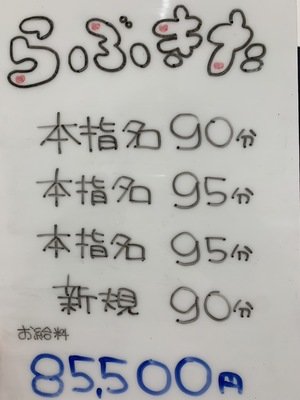 らぶきゅ
本指名 90分
本指名 95分
本指名 95分
新規 90分
お給料
85,500円